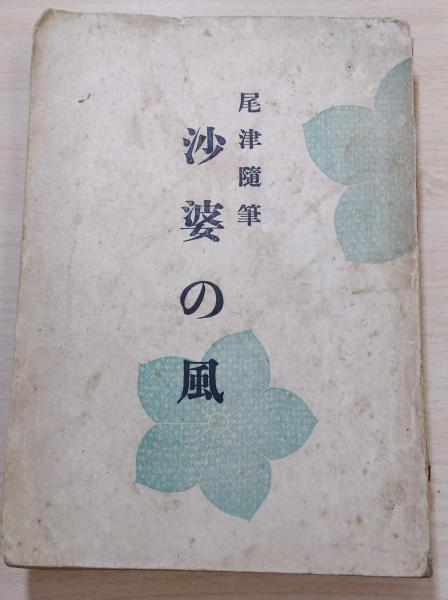 尾津隨筆
沙婆の風